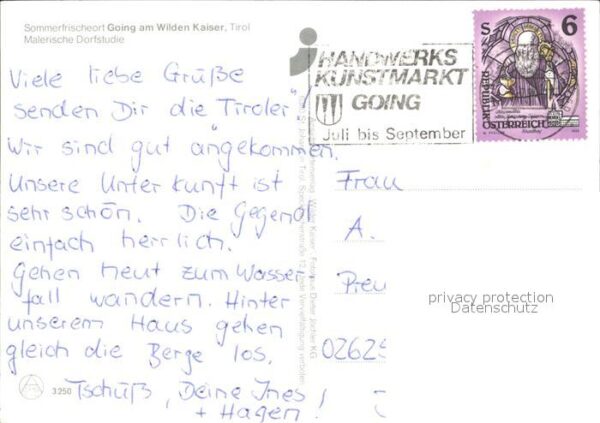 Sommerfrischeort Going am Wilden Kaiser, Tirol
Malerische Dorfstudie
HANDWERKS
KUNSTMARKT
GOING
Juli bis September
S 6
REPUBLIK
ÖSTERREICH
Viele liebe Grüße
senden Dir die "Tiroler"!
Wir sind gut angekommen.
Unsere Unterkunft ist
sehr schön. Die Gegend
einfach herrlich.
Gehen heut zum Wasser-
fall wandern. Hinter
unserem Haus gehen
gleich die Berge los.
Tschüß, Deine Ines
+ Hagen!
Frau
A.
Preu
0262
privacy protection
Datenschutz
3250